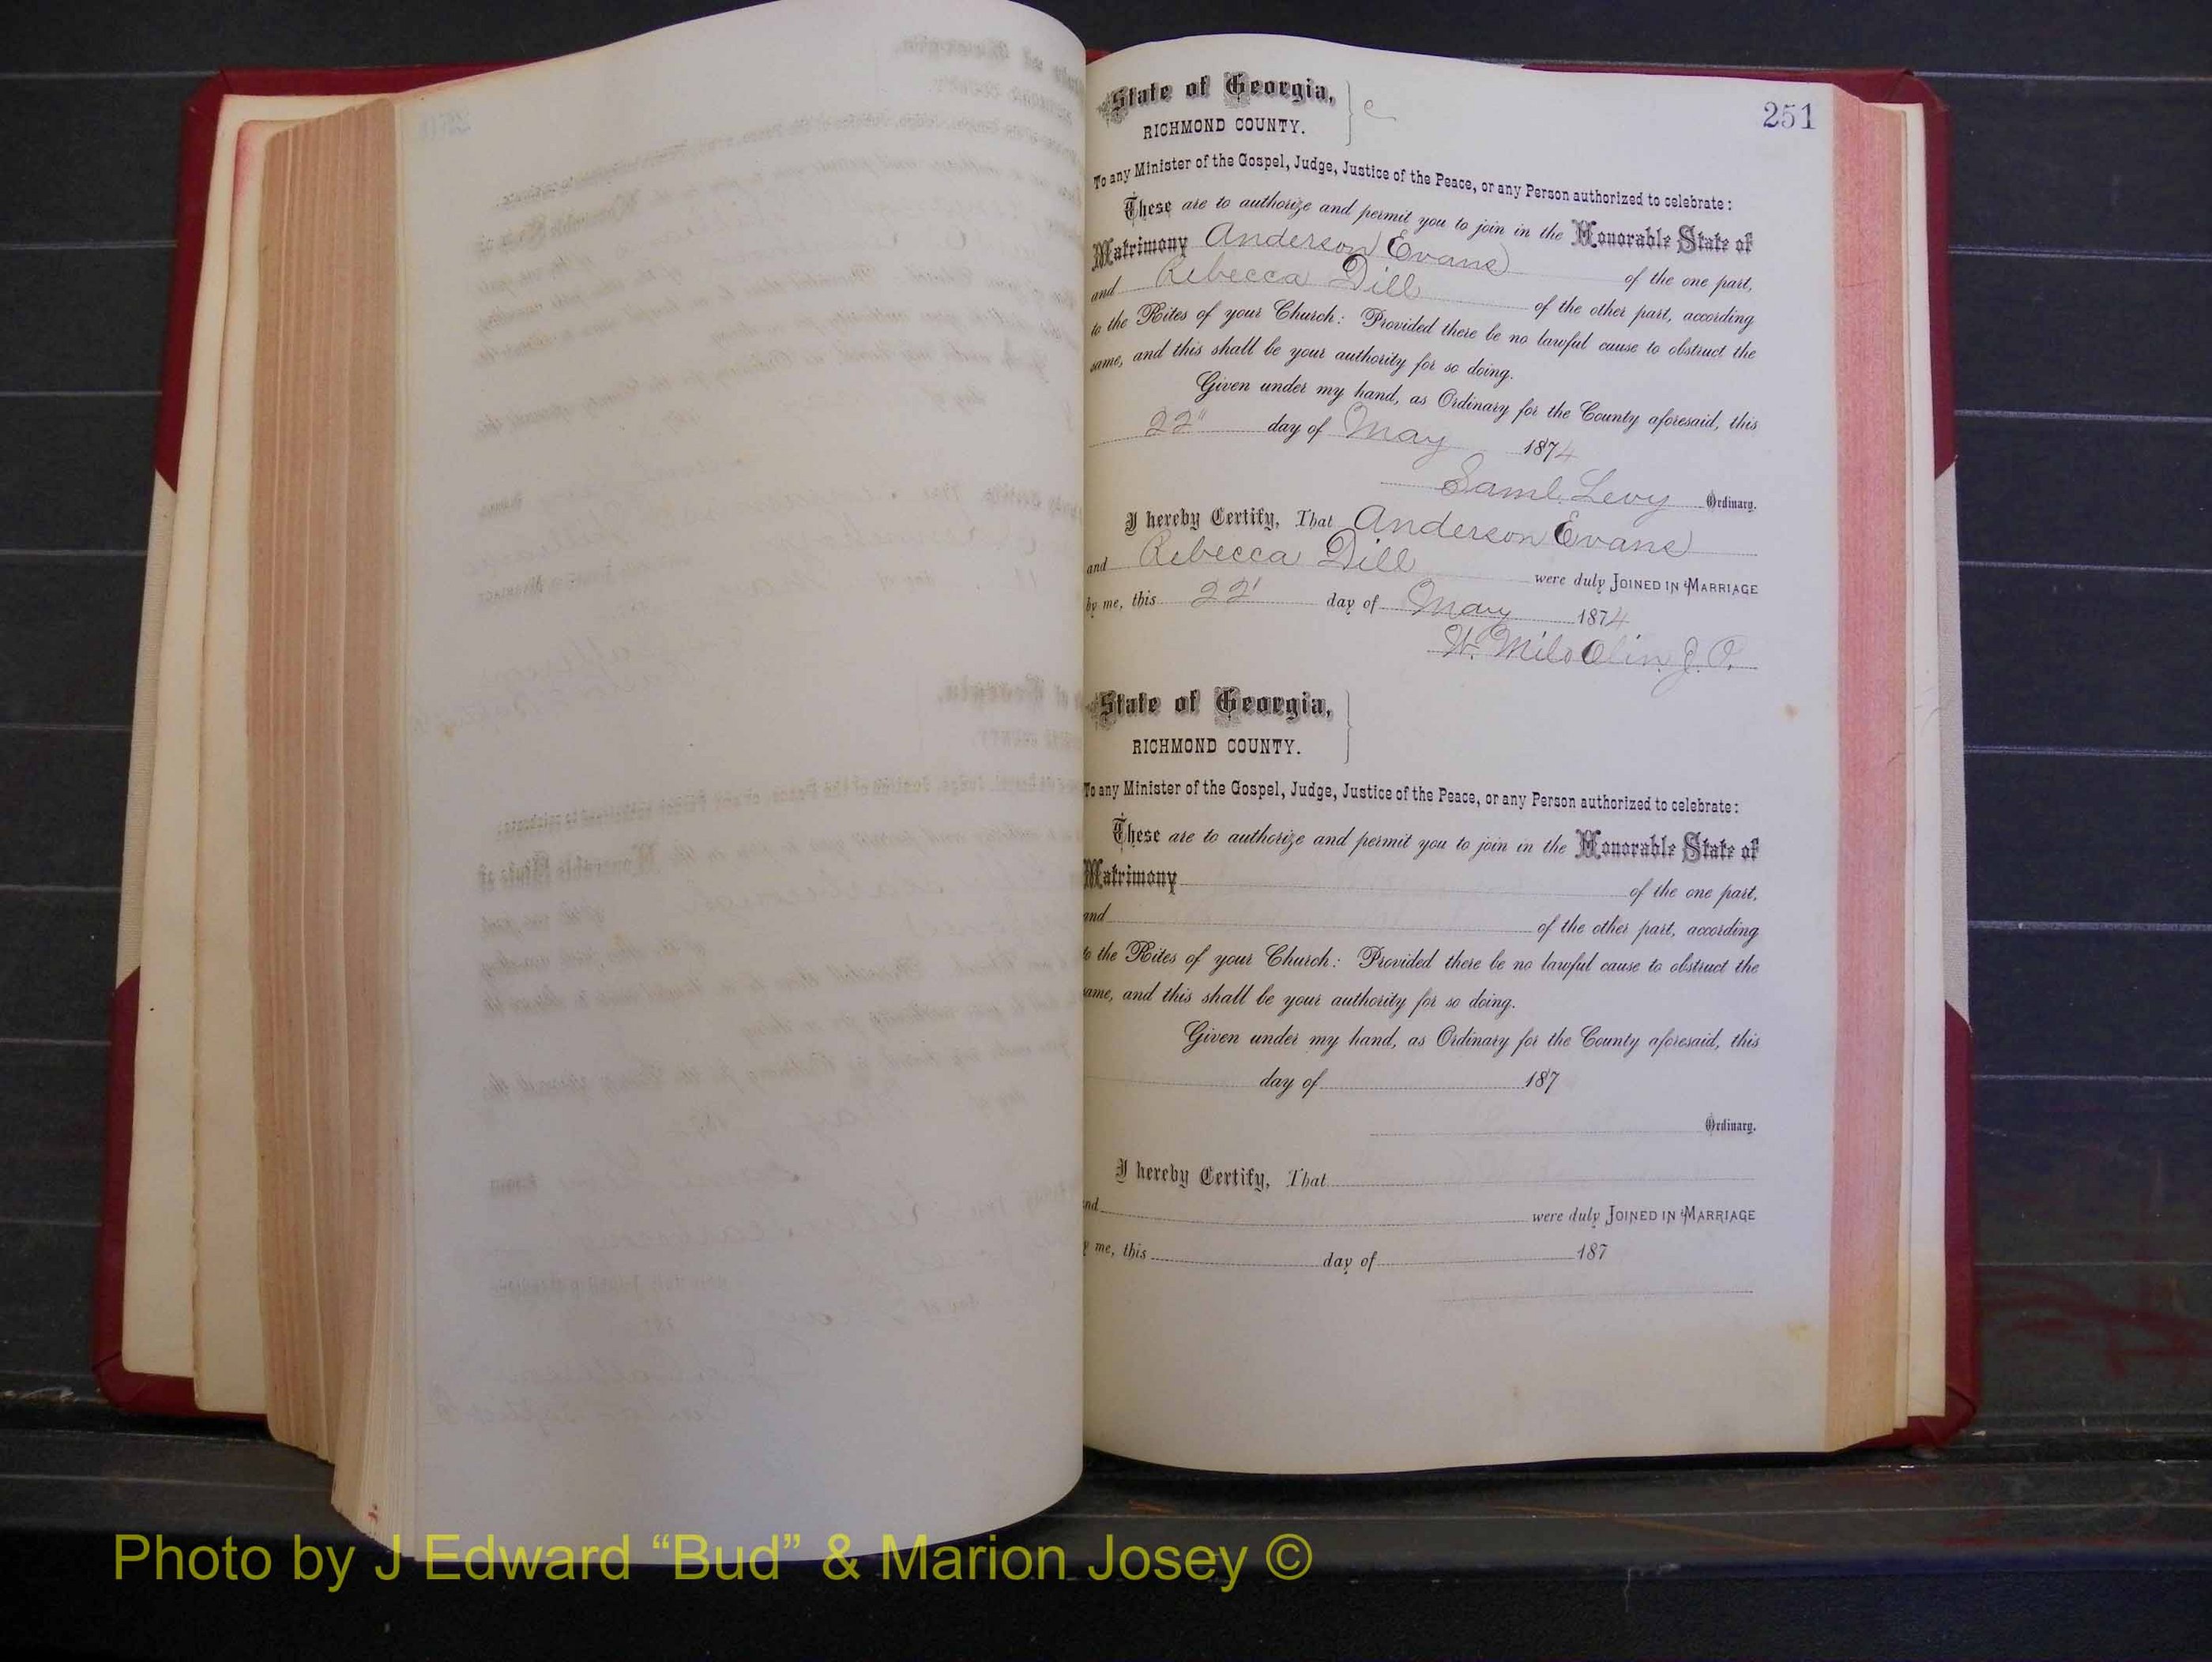 251
State of Georgia,
RICHMOND COUNTY.
To any Minister of the Gospel, Judge, Justice of the Peace, or any Person authorized to celebrate:
These are to authorize and permit you to join in the Honorable State of
Matrimony Anderson Evans of the one part,
and Rebecca Dill of the other part, according
to the Rites of your Church: Provided there be no lawful cause to obstruct the
same, and this shall be your authority for so doing.
Given under my hand, as Ordinary for the County aforesaid, this
22" day of May 1874
Saml Levy Ordinary.
I hereby Certify, That Anderson Evans
and Rebecca Dill were duly JOINED IN MARRIAGE
by me, this 22' day of May 1874
W. Milo Olin J. P.
State of Georgia,
RICHMOND COUNTY.
To any Minister of the Gospel, Judge, Justice of the Peace, or any Person authorized to celebrate:
These are to authorize and permit you to join in the Honorable State of
Matrimony of the one part,
and of the other part, according
to the Rites of your Church: Provided there be no lawful cause to obstruct the
same, and this shall be your authority for so doing.
Given under my hand, as Ordinary for the County aforesaid, this
day of 187
Ordinary.
I hereby Certify, That
and were duly JOINED IN MARRIAGE
me, this day of 187
Photo by J Edward “Bud” & Marion Josey ©